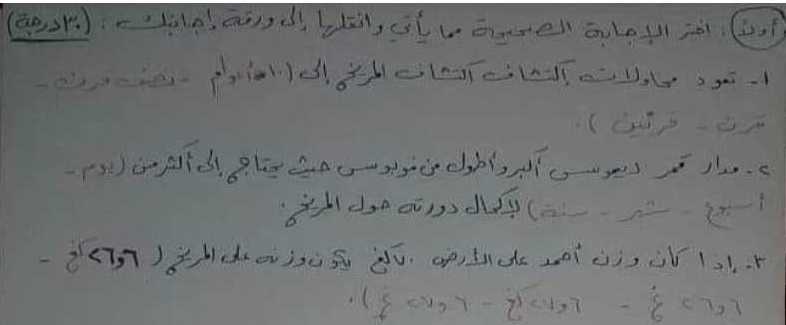 أولاً: اختر الإجابة الصحيحة مما يأتي وانقلها إلى ورقة إجابتك: (٣٠ درجة)
١- تعود محاولات إكتشاف اكتشاف المريخ إلى (١٠ أعوام - نصف قرن -
قرن - قرنين).
٢- مدار قمر ديموس أكبر وأطول من فوبوس حيث يحتاج إلى أكثر من (يوم -
أسبوع - شهر - سنة) لإكمال دورته حول المريخ.
٣- إذا كان وزن أحمد على الأرض ٧٠ كغ يكون وزنه على المريخ (٢٦,٦ كغ -
٢٦,٦ غ - كغ - غ).